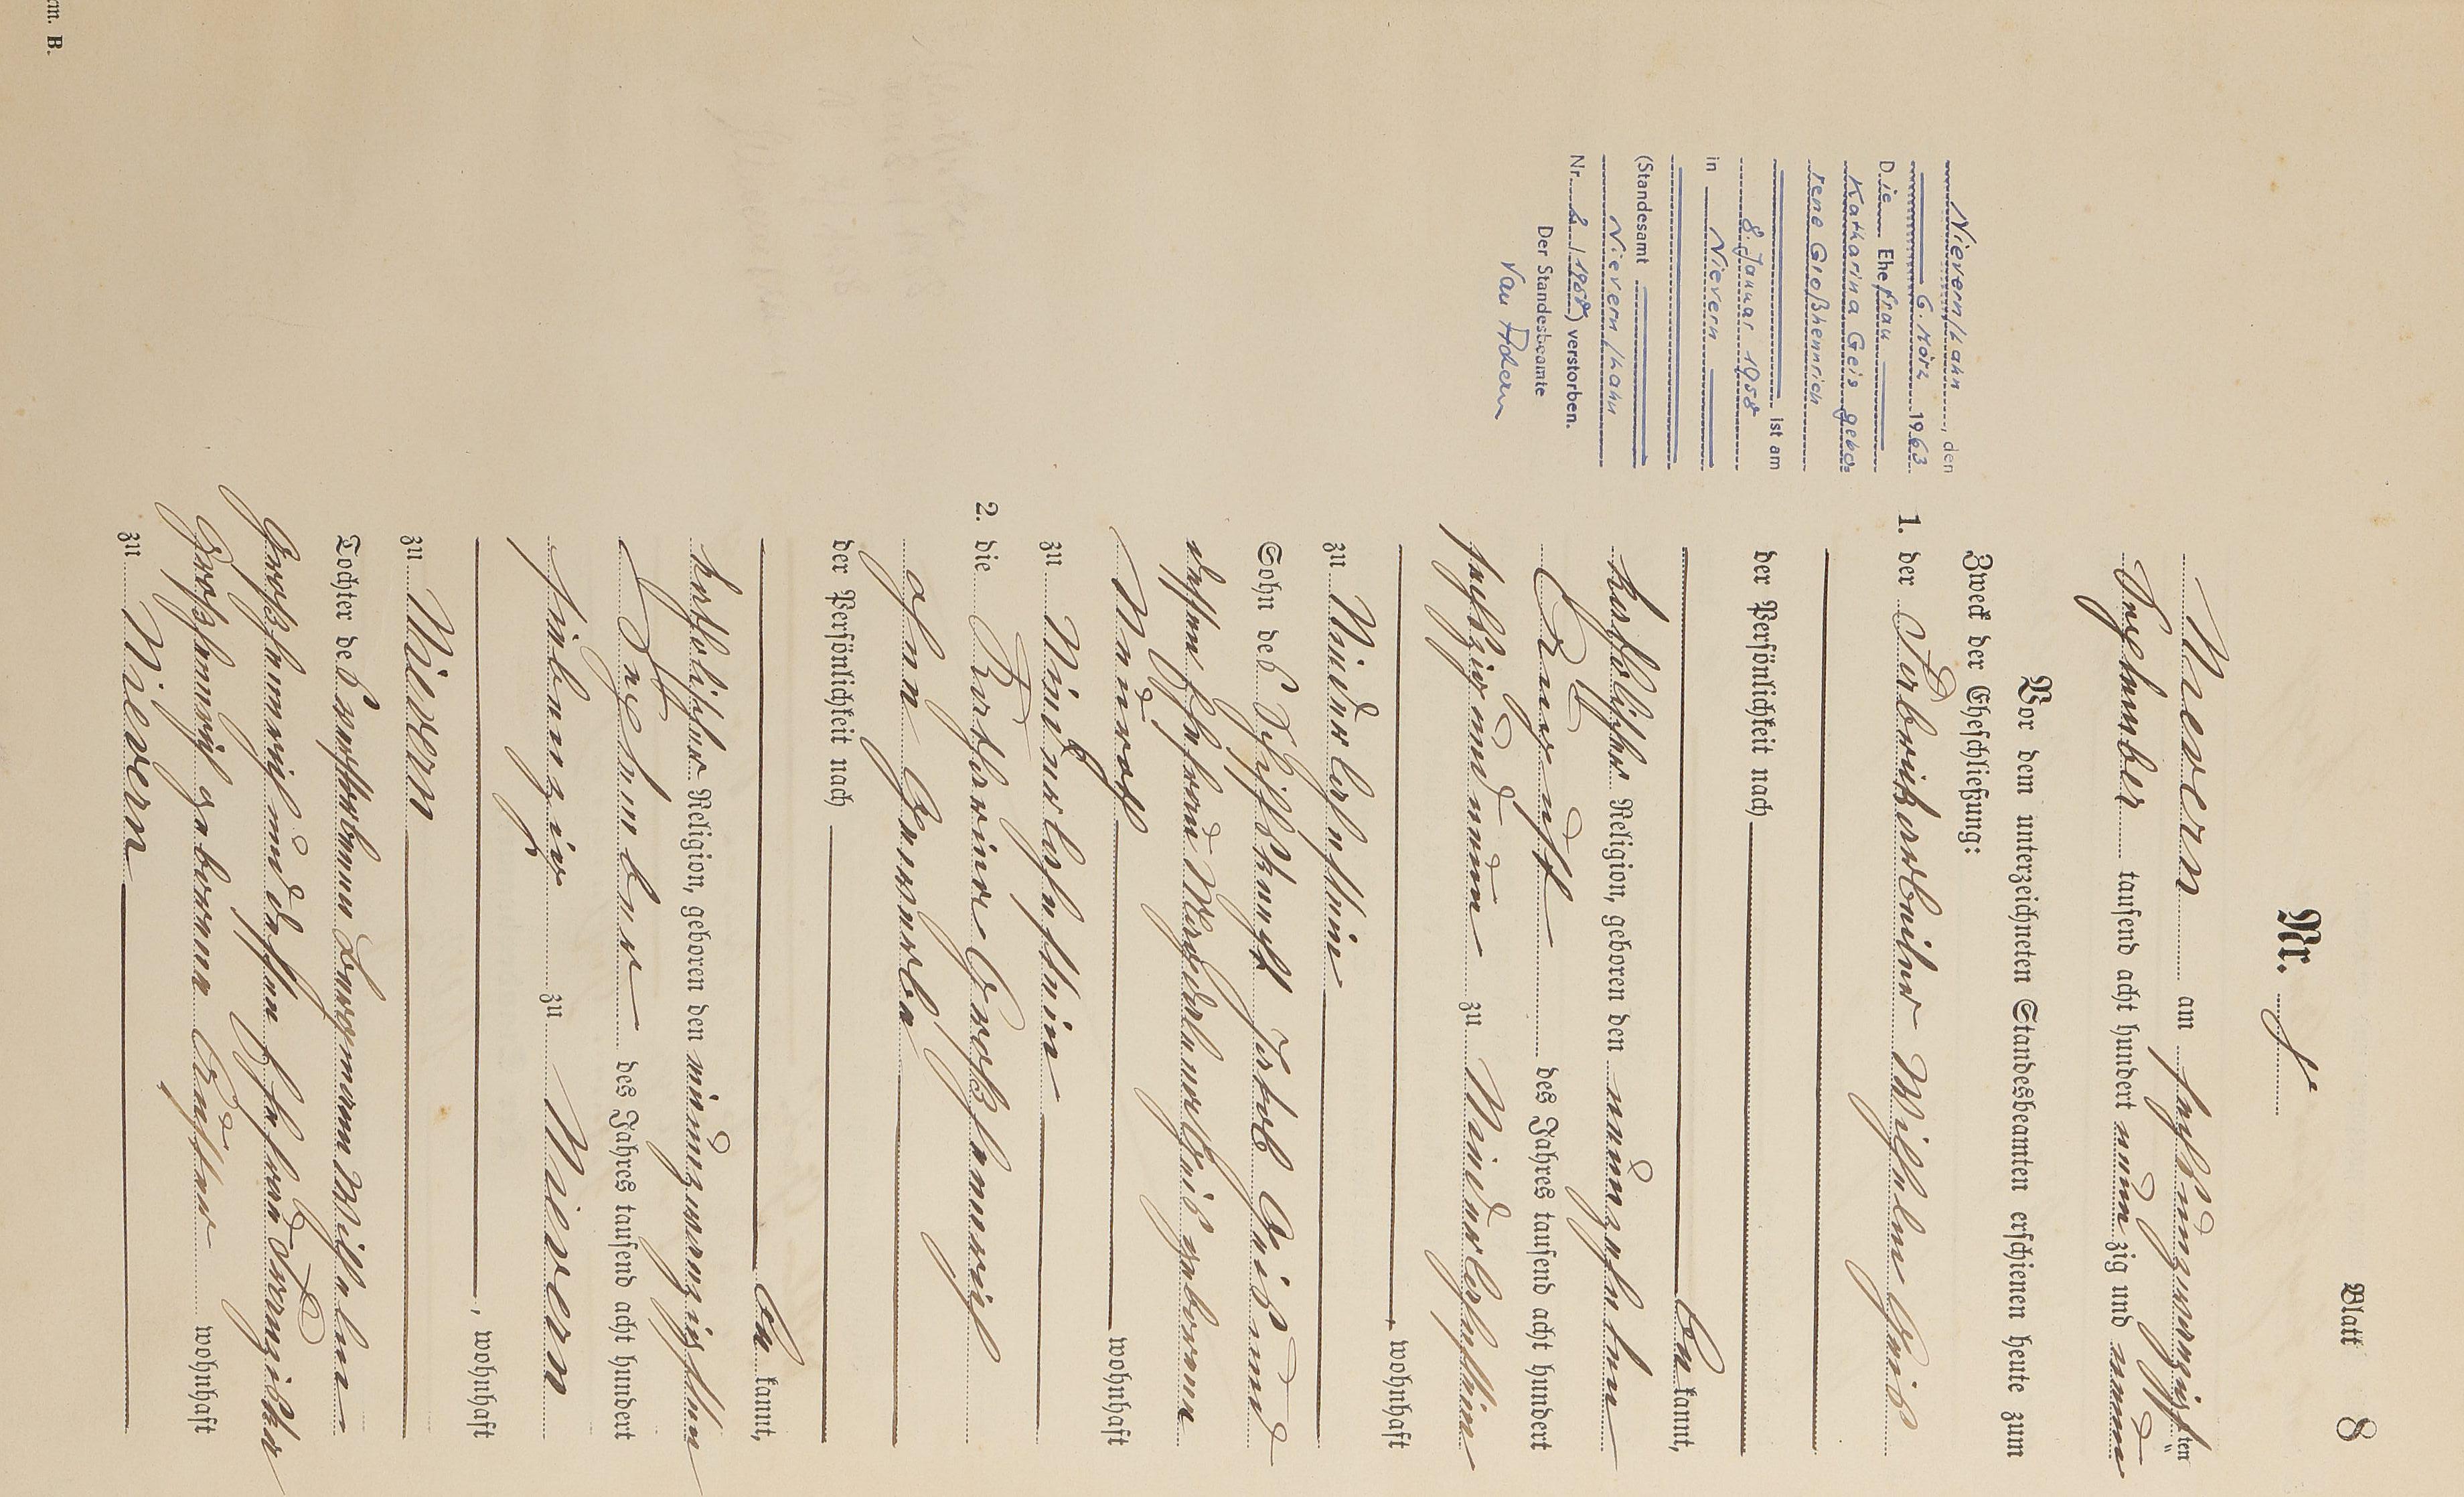 Blatt 8
Nr. 8
Nievern am sechsundzwanzigsten
Dezember tausend acht hundert neunzig und neun
Vor dem unterzeichneten Standesbeamten erschienen heute zum
Zweck der Eheschließung:
1. der Fabrikarbeiter Wilhelm Geis
der Persönlichkeit nach
bekannt,
katholischer Religion, geboren den neunzehnten
August des Jahres tausend acht hundert
sechszig und neun zu Niederlahnstein
, wohnhaft
zu Niederlahnstein
Sohn des Schiffsknecht Jakob Geis und
dessen Ehefrau Magdalena Geis geborene
wohnhaft
zu Niederlahnstein
2. die Katharina Großhennrich
ohne Gewerbe
der Persönlichkeit nach
bekannt,
katholischer Religion, geboren den neunundzwanzigsten
Dezember des Jahres tausend acht hundert
siebenzig zu Nievern
, wohnhaft
zu Nievern
Tochter des verstorbenen Bergmann Wilhelm
Großhennrich und dessen Ehefrau Franziska
Großhennrich geborene wohnhaft
zu Nievern
Nievern/Lahn, den
6. März 1963
Die Ehefrau
Katharina Geis gebo=
rene Großhennrich
ist am
8. Januar 1958
in Nievern
(Standesamt
Nievern/Lahn
Nr. 2/1958) verstorben.
Der Standesbeamte
rm. B.